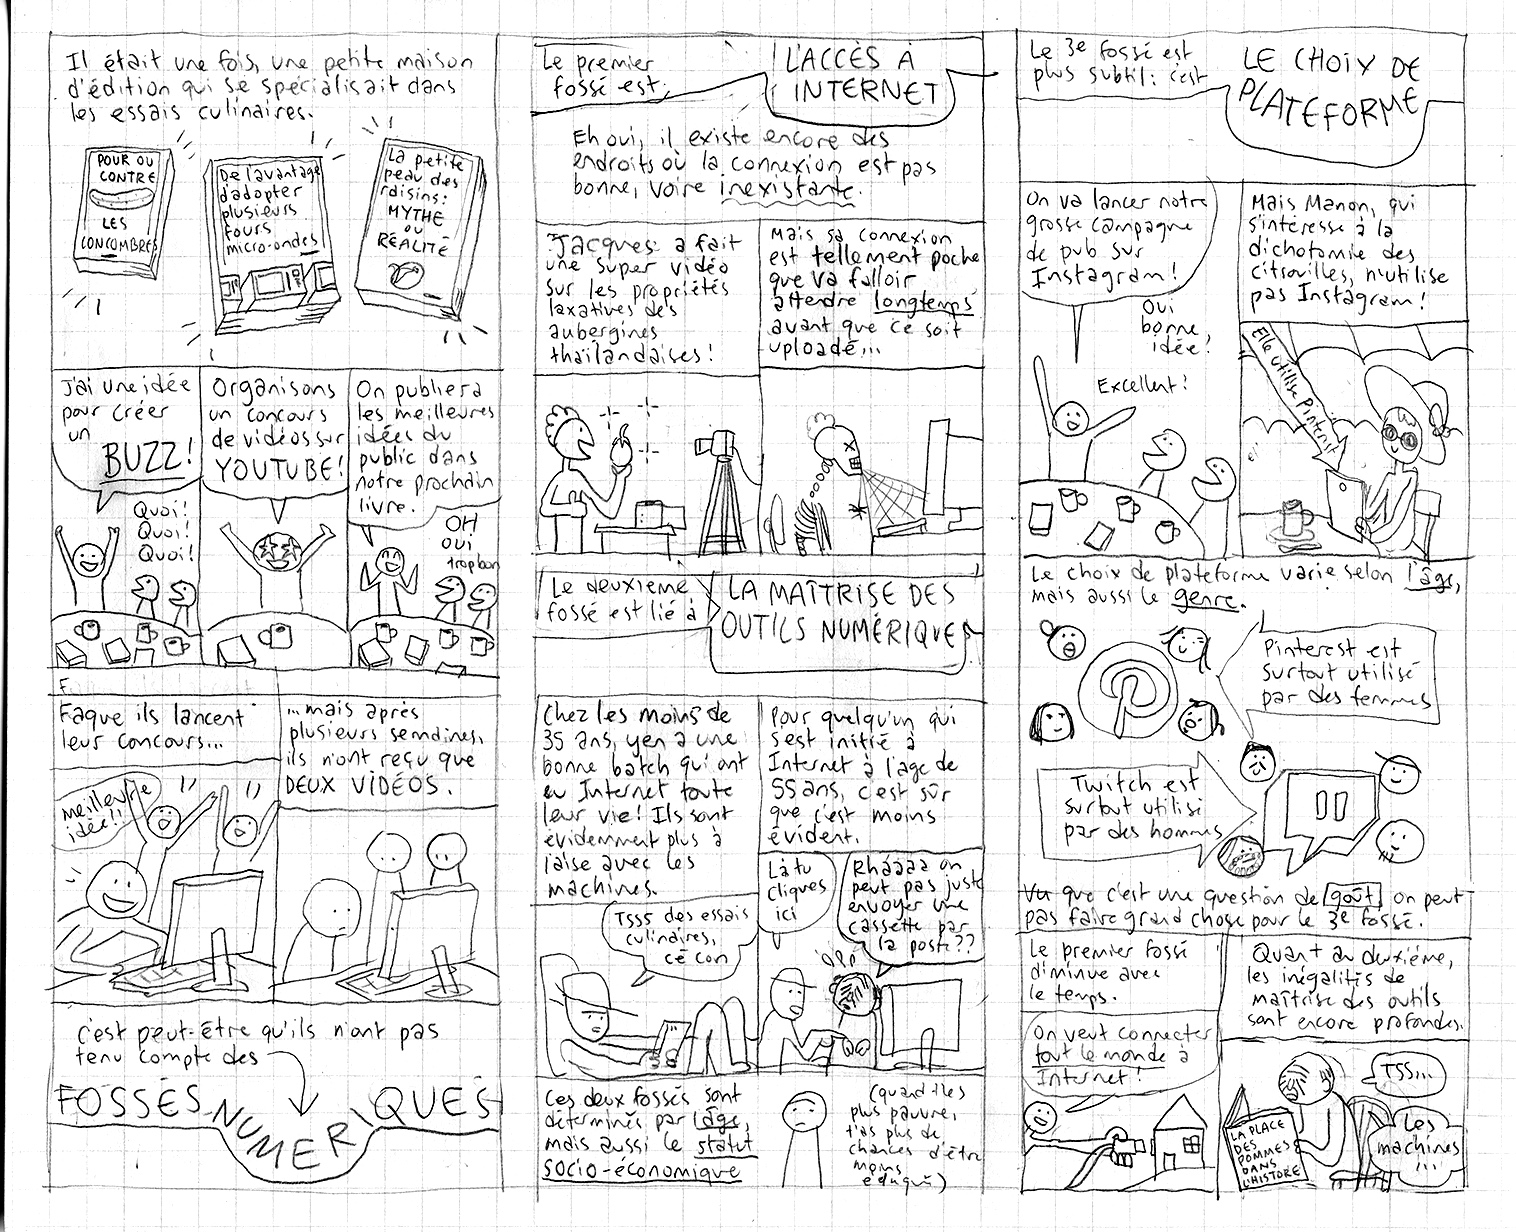 Il était une fois, une petite maison
d'édition qui se spécialisait dans
les essais culinaires.
POUR OU
CONTRE
LES
CONCOMBRES
De l'avantage
d'adopter
plusieurs
fours
micro-ondes
La petite
peau des
raisins:
MYTHE
OU
RÉALITÉ
J'ai une idée
pour créer
un
BUZZ!
Quoi!
Quoi!
Quoi!
Organisons
un concours
de vidéos sur
YOUTUBE!
On publiera
les meilleures
idées du
public dans
notre prochain
livre.
OH
oui
trop bon
Faque ils lancent
leur concours...
meilleure
idée!!
...mais après
plusieurs semaines,
ils n'ont reçu que
DEUX VIDÉOS.
C'est peut-être qu'ils n'ont pas
tenu compte des
FOSSÉS NUMÉRIQUES
Le premier
fossé est,
L'ACCÈS À
INTERNET
Eh oui, il existe encore des
endroits où la connexion est pas
bonne, voire inexistante.
Jacques a fait
une super vidéo
sur les propriétés
laxatives des
aubergines
thaïlandaises!
Mais sa connexion
est tellement poche
que va falloir
attendre longtemps
avant que ce soit
uploadé...
Le deuxième
fossé est lié à
LA MAÎTRISE DES
OUTILS NUMÉRIQUES
Chez les moins de
35 ans, yen a une
bonne batch qui ont
eu Internet toute
leur vie! Ils sont
évidemment plus à
l'aise avec les
machines.
Tsss des essais
culinaires,
cé con
Pour quelqu'un qui
s'est initié à
Internet à l'âge de
55 ans, c'est sûr
que c'est moins
évident.
Là tu
cliques
ici
Rháááá on
peut pas juste
envoyer une
cassette par
la poste??
Ces deux fossés sont
déterminés par l'âge,
mais aussi le statut
socio-économique
(quand t'es
plus pauvre,
t'as plus de
chances d'être
moins
éduqué)
Le 3e fossé est
plus subtil: c'est
LE CHOIX DE
PLATEFORME
On va lancer notre
grosse campagne
de pub sur
Instagram!
Oui
bonne
idée!
Excellent!
Mais Manon, qui
s'intéresse à la
dichotomie des
citrouilles, n'utilise
pas Instagram!
Elle utilise Pinterest
Le choix de plateforme varie selon l'âge,
mais aussi le genre.
Pinterest est
surtout utilisé
par des femmes
Twitch est
surtout utilisé
par des hommes
Vu que c'est une question de goût on peut
pas faire grand chose pour le 3e fossé.
Le premier fossé
diminue avec
le temps.
On veut connecter
tout le monde à
Internet!
Quant au deuxième,
les inégalités de
maîtrise des outils
sont encore profondes.
TSS...
Les
machines
...
LA PLACE
DES
POMMES
DANS
L'HISTOIRE